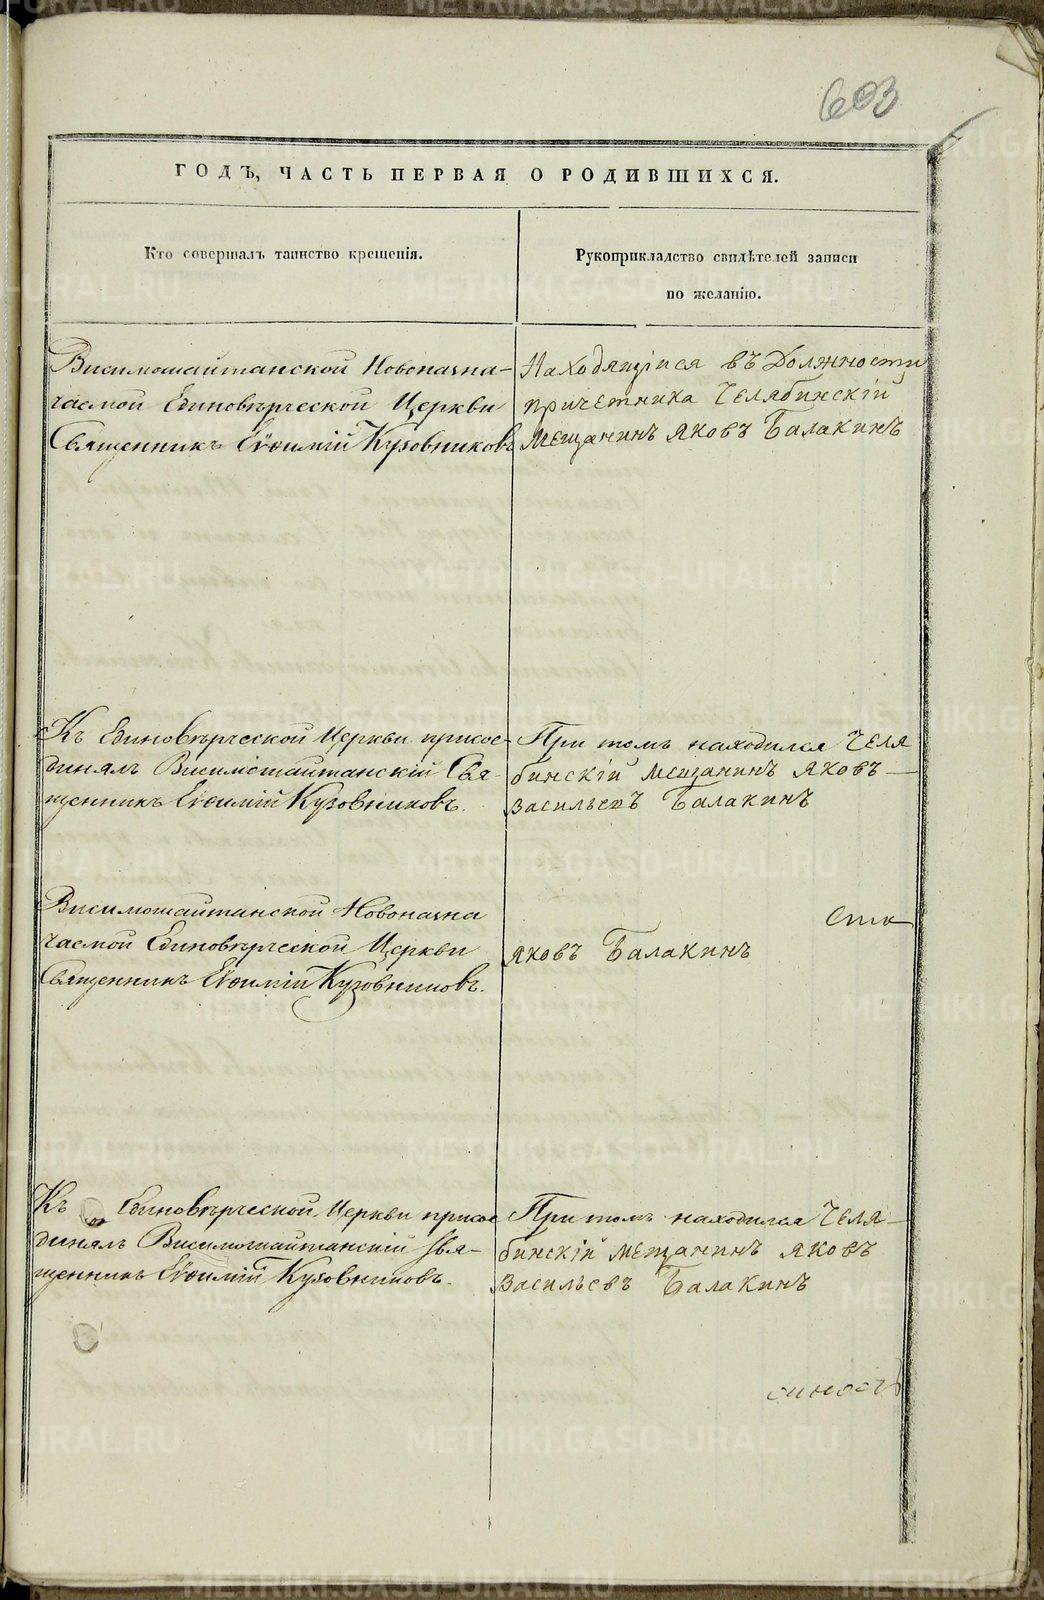 603
ГОДЪ, ЧАСТЬ ПЕРВАЯ О РОДИВШИХСЯ.
Кто совершалъ таинство крещенія.
Рукоприкладство свидѣтелей записи
по желанію.
Висимошайтанской Новоначи-
наемой Единовѣрческой Церкви
Священникъ Евѳимій Кузовниковъ
Находящійся въ Должности
причетника Челябинскій
Мещанинъ Яковъ Балакинъ
Къ Единовѣрческой Церкви присое-
динялъ Висимошайтанскій Свя-
щенникъ Евѳимій Кузовниковъ.
При томъ находился Челя
бинскій мещанинъ Яковъ
Васильевъ Балакинъ
Висимошайтанской Новоначи
наемой Единовѣрческой Церкви
Священникъ Евѳимій Кузовниковъ.
Яковъ Балакинъ
Къ Единовѣрческой Церкви присое
динялъ Висимошайтанскій Свя-
щенникъ Евѳимій Кузовниковъ.
При томъ находился Челя-
бинскій мещанинъ Яковъ
Васильевъ Балакинъ
METRIKI.GASO-URAL.RU